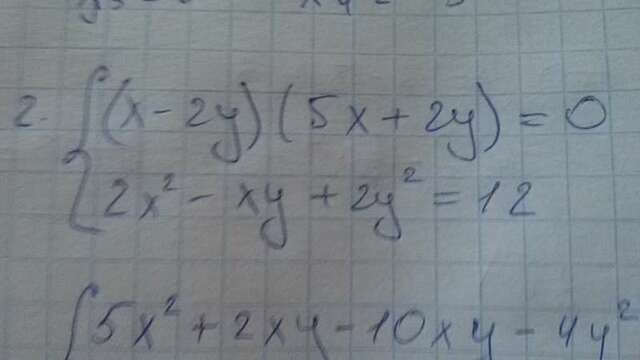 2. { (x - 2y) ( 5x + 2y) = 0
2x² - xy + 2y² = 12
{ 5x² + 2xy - 10xy - 4y²